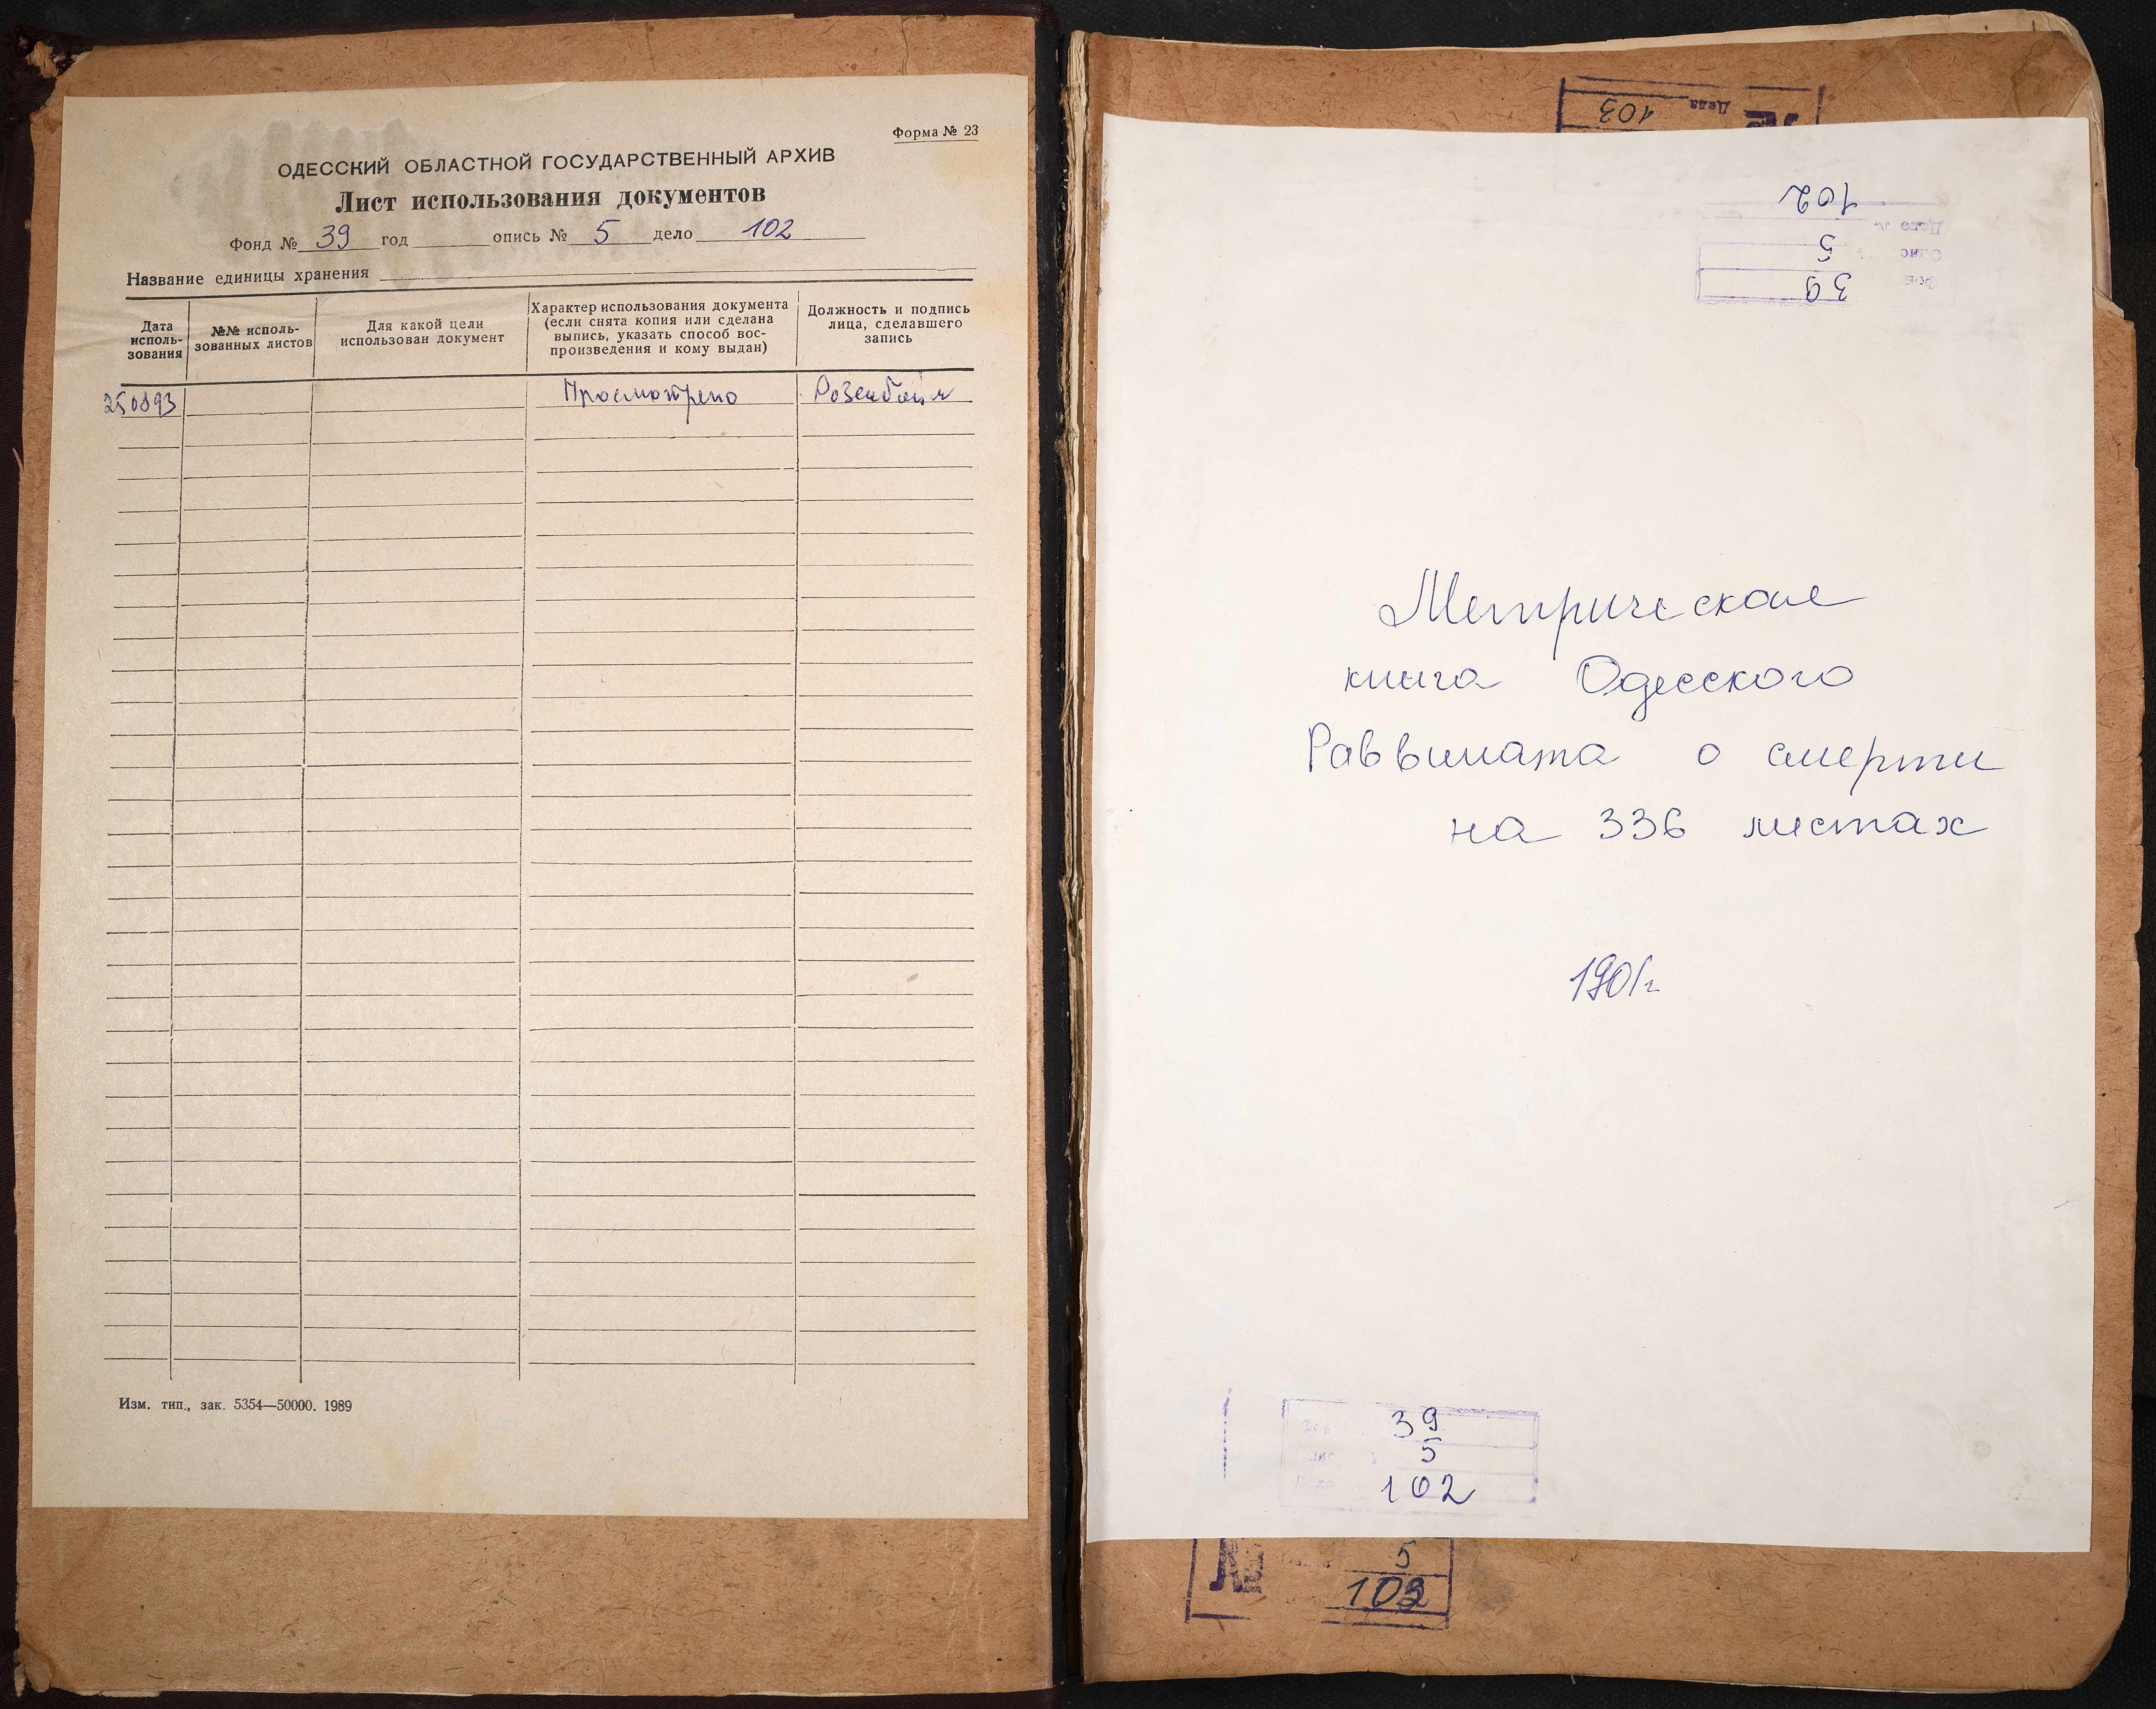 Форма № 23
ОДЕССКИЙ ОБЛАСТНОЙ ГОСУДАРСТВЕННЫЙ АРХИВ
Лист использования документов
Фонд № 39 год опись № 5 дело 102
Название единицы хранения
Дата исполь-зования
№№ исполь-зованных листов
Для какой цели использован документ
Характер использования документа (если снята копия или сделана выпись, указать способ вос-произведения и кому выдан)
Должность и подпись лица, сделавшего запись
250893 Просмотрено
Изм. тип., зак. 5354—50000. 1989
Дела 103
102
5
39
Метрическая
книга Одесского
Раввината о смерти
на 336 листах
1901г
39
5
Дело 102
№ 5